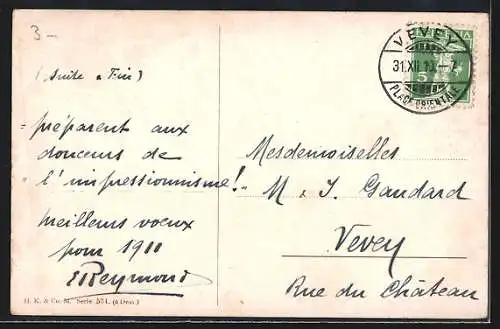 3-
(Suite & Fin)
préparent aux
douceurs de
l'impressionnisme!
meilleurs voeux
pour 1911
EReymond
H. K. & Co. M. Serie 551. (6 Dess.)
VEVEY
31.XII.10.-7
PLACE ORIENTALE
5
Mesdemoiselles
M & J. Gaudard
Vevey
Rue du Château